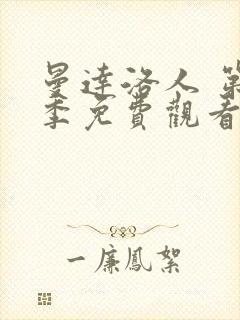 曼達洛人 第
季免費觀看
一廉鳳絮